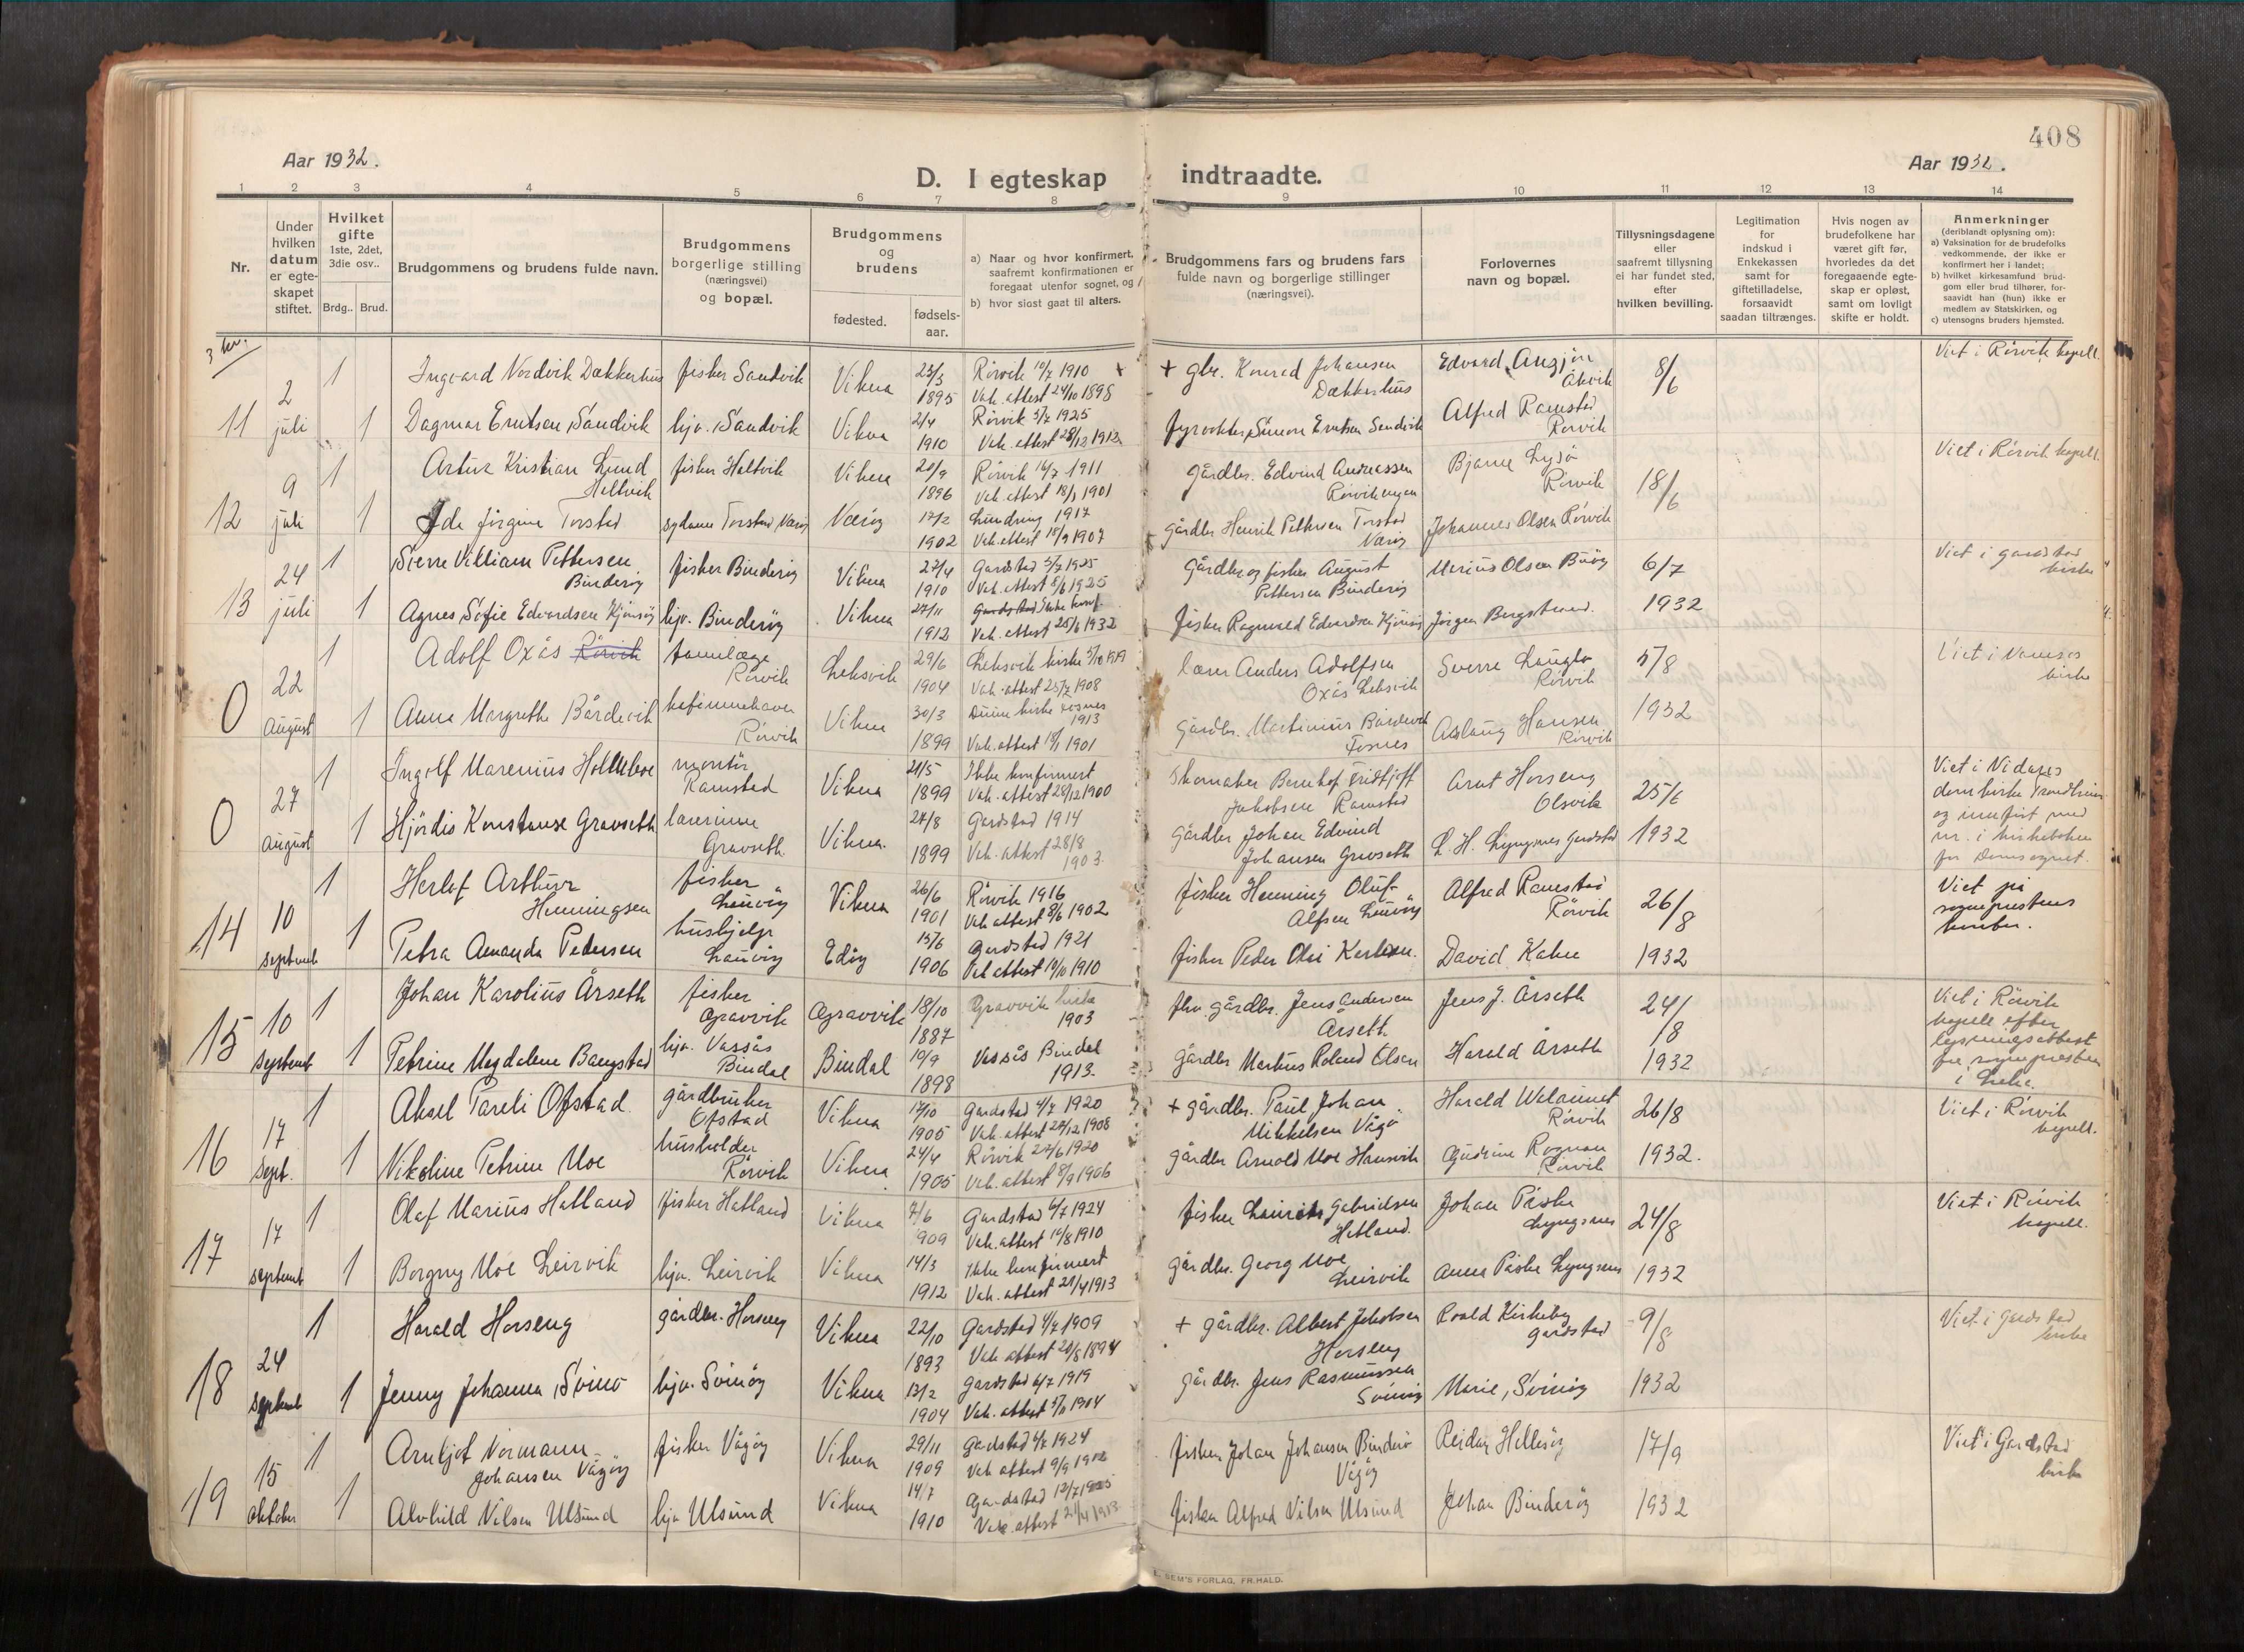 408
Aar 1932.
Aar 1932.
D. I egteskap indtraadte.
1 2 3 4 5 6 7 8 9 10 11 12 13 14
Nr.
Under hvilken datum er egte-skapet stiftet.
Hvilket gifte
1ste, 2det, 3die osv..
Brdg.. Brud.
Brudgommens og brudens fulde navn.
Brudgommens borgerlige stilling (næringsvei) og bopæl.
Brudgommens og brudens
fødested.
fødsels-aar.
a) Naar og hvor konfirmert, saafremt konfirmationen er foregaat utenfor sognet, og
b) hvor sidst gaat til alters.
Brudgommens fars og brudens fars fulde navn og borgerlige stillinger (næringsvei).
Forlovernes navn og bopæl.
Tillysningsdagene eller saafremt tillysning ei har fundet sted, efter hvilken bevilling.
Legitimation for indskud i Enkekassen samt for giftetilladelse, forsaavidt saadan tiltrænges.
Hvis nogen av brudefolkene har været gift før, hvorledes da det foregaaende egte-skap er opløst, samt om lovligt skifte er holdt.
Anmerkninger
(deriblandt oplysning om):
a) Vaksination for de brudefolks vedkommende, der ikke er konfirmert her i landet;
b) hvilket kirkesamfund brud-gom eller brud tilhører, for-saavidt han (hun) ikke er medlem av Statskirken, og
c) utensogns bruders hjemsted.
11 2 juli
1 Ingvard Nordvik Dekkerhus fisker Sandvik Vikna 23/3 1895 Rörvik 10/7 1910 Vak. attest 24/10 1898
+ gbr. Konrad Johansen Dekkerhus Edvard Åkvik 8/6 Viet i Rörvik kapell.
1 Dagmar Erntsen Sandvik hjv. Sandvik Vikna 2/4 1910 Rörvik 5/7 1925 Vak. attest 28/12 1912
Fyrvokter Simon Erntsen Sandvik Alfred Ramstad Rörvik
12 9 juli
1 Artur Kristian Lund Heltvik fisker Heltvik Vikna 20/9 1896 Rörvik 16/7 1911 Vak. attest 18/1 1901
gårdbr. Edvind Andreassen Bjarne Lysö Rörvik 18/6 Viet i Rörvik kapell.
1 Ida Jörgine Torstad sydame Torstad Værøy 17/2 1902 Lundring 1917 Vak. attest 18/9 1907
gårdbr Henrik Pettersen Torstad Johannes Olsen Rörvik
13 24 juli
1 Sverre Villiam Pettersen Binderöy fisker Binderöy Vikna 27/4 1910 Gardstad 5/7 1925 Vak. attest 8/6 1925
Gårdbr og fisker August Pettersen Binderöy Marius Olsen Buöy 6/7 Viet i Gardstad kirke
1 Agnes Sofie Edvardsen Kjönsöy hjv. Binderöy Vikna 27/11 1912 Gardstad Ikke konf. Vak. attest 25/6 1932
fisker Ragnvald Edvardsen Kjönsöy Jörgen Bergstrand. 1932
0 22 august
1 Adolf Oxås Rörvik tannlæge Rörvik Leksvik 29/6 1904 Leksvik kirke 5/10 1919 Vak. attest 25/7 1908
lærer Anders Adolfsen Oxås Leksvik Sverre Rörvik 5/8 Viet i kirke
1 Anna Margrethe Bårdsvik kafeinnehaver Rörvik Vikna 30/3 1899 kirke Fosnes 1913 Vak. attest 18/1 1901
gårdbr. Martinus Bårdsvik Fosnes Aslaug Hansen Rörvik 1932
0 27 august
1 Ingolf Marenius montör Ramstad Vikna 21/5 1899 Ikke konfirmert Vak. attest 28/12 1900
Skomaker Bernhof Fridtjoff Jakobsen Ramstad Arnt Horseng Olsvik 25/6 Viet i Nidaros domkirke Trondheim og innfört med nr. i kirkeboken for Domsognet.
1 Hjördis Konstanse Gravseth lærerinne Gravseth Vikna. 27/8 1899 Gardstad 1914 Vak. attest 28/8 1903.
gårdbr Johan Edvind Johansen Gravseth L. H. Lyngsnes Gardstad 1932
14 10 septemb
1 Herlof Arthur Henningsen fisker Lauvöy Vikna 26/6 1901 Rörvik 1916 Vak attest 8/6 1902
fisker Henning Oluf Alfsen Lauvöy Alfred Ramstad Rörvik 26/8 Viet på sogneprestens kontor.
1 Petra Amanda Pedersen hushjelp Lauvöy Edöy 15/6 1906 Gardstad 1921 Vak attest 10/10 1910
fisker Peder Olai David Kahn 1932
15 10 septemb
1 Johan Karolius Årseth fisker Gravvik Gravvik 18/10 1887 Gravvik kirke 1903
fhv. gårdbr. Jens Andersen Årseth Jens J. Årseth 24/8 Viet i Rörvik kapell efter lysningsattest fra sognepresten i Leka.
1 Petrine Magdalene Bangstad hjv. Vassås Bindal Bindal 10/9 1898 Vassås Bindal 1913.
gårdbr Markus Roland Olsen Harald Årseth 1932
16 17 sept.
1 Aksel Pareli Ofstad gårdbruker Ofstad Vikna 17/10 1905 Gardstad 4/7 1920 Vak. attest 28/12 1908
+ gårdbr. Paul Johan Mikkelsen Vågö Harald Rörvik 26/8 Viet i Rörvik kapell.
1 Nikoline Petrine Moe husholder Rörvik Vikna 24/4 1905 Rörvik 27/6 1920 Vak. attest 8/9 1906
gårdbr Arnold Moe Hansvik Gudrun Rognan Rörvik 1932.
17 17 septemb
1 Olaf Marius Hatland fisker Hatland Vikna 7/6 909 Gardstad 6/7 1924 Vak. attest 10/8 1910
fisker Laurits Gabrielsen Hatland. Johan Påske Lyngsnes 24/8 Viet i Rörvik kapell.
1 Borgny Moe Leirvik hjv. Leirvik Vikna 14/3 1912 Ikke konfirmert Vak. attest 21/4 1913
gårdbr. Georg Moe Leirvik Anna Påske Lyngsnes 1932
18 24 septemb
1 Harald Horseng gårdbr. Horseng Vikna 22/10 1893 Gardstad 4/7 1909 Vak attest 20/8 1894
+ gårdbr. Albert Jakobsen Horseng Roald Kirkeby Gardstad 9/8 Viet i Gardstad kirke
1 Jenny Johanna Svinö hjv. Svinöy Vikna 13/2 1904 Gardstad 6/7 1919 Vak. attest 5/11 1904
gårdbr. Jens Rasmussen Svinöy Marie Svinöy 1932
19 15 oktober
1 Arnljot Normann Johansen Vågöy fisker Vågöy Vikna 29/11 1909 Gardstad 6/7 1924 Vak attest 9/9 1912
fisker Johan Johansen Binderö Vågöy Reidar Hellesöy 17/9 Viet i Gardstad kirke
1 Alvhild Nilsen Ulsund hjv Ulsund Vikna 14/7 1910 Gardstad 12/7 1925 Vak. attest 21/4 1913
fisker Alfred Nilsen Ulsund Johan Binderöy 1932
SEM'S FORLAG, FR.HALD.